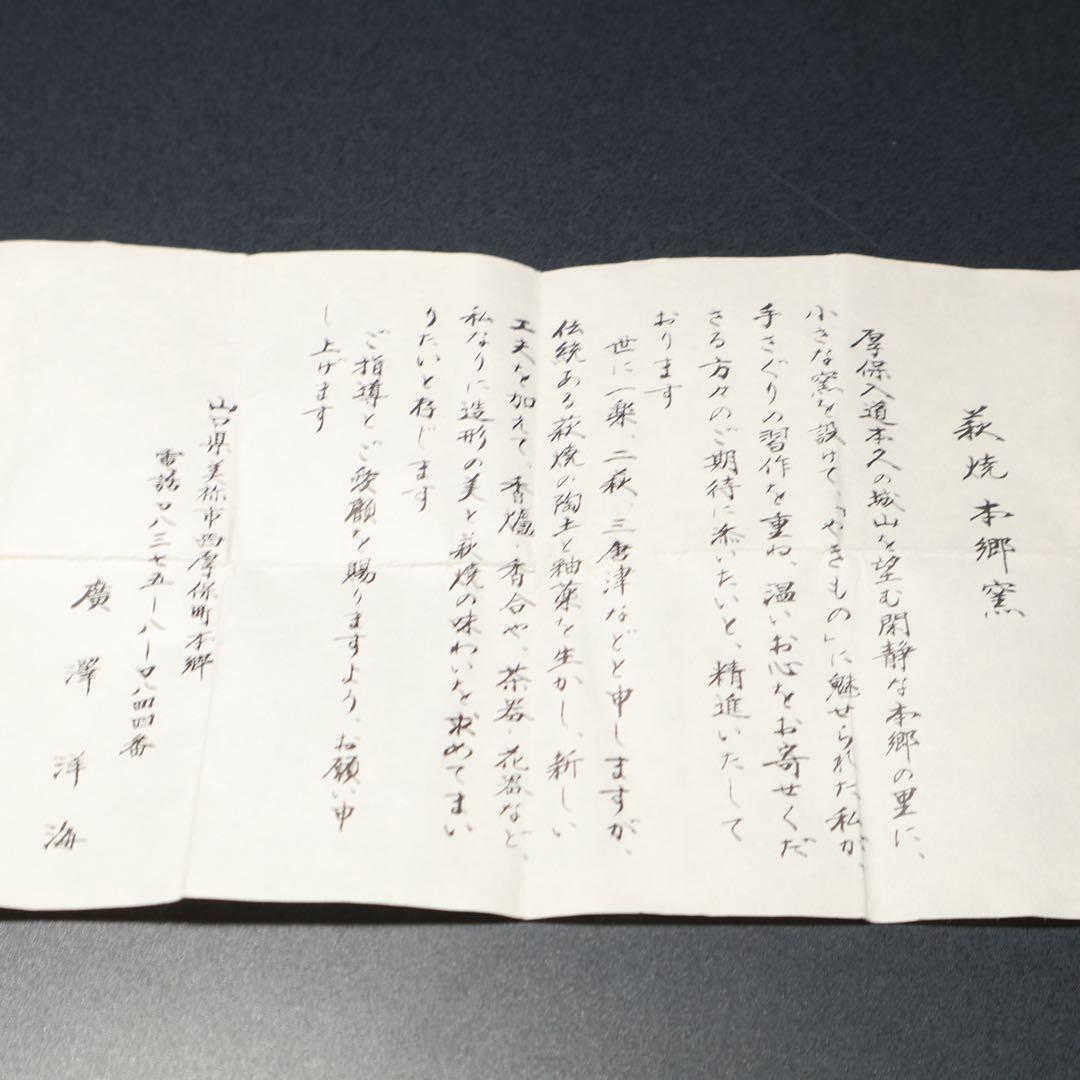 萩焼本郷窯
厚保入道本久の城山を望む閑静な本郷の里に、
小さな窯を設けて、「やきもの」に魅せられた私が、
手さぐりの習作を重ね、温いお心をお寄せくだ
さる方々のご期待に添いたいと、精進いたして
おります
世に一楽、二萩、三唐津などと申しますが、
伝統ある萩焼の陶土と釉薬を生かし、新しい
工夫を加えて、香爐・香合や、茶器・花器など、
私なりに造形の美と萩焼の味わいを求めてまい
りたいと存じます
ご指導とご愛顧を賜りますよう、お願い申
し上げます
山口県美祢市西厚保町本郷
電話〇八三七五―八―〇八四四番
廣澤洋海